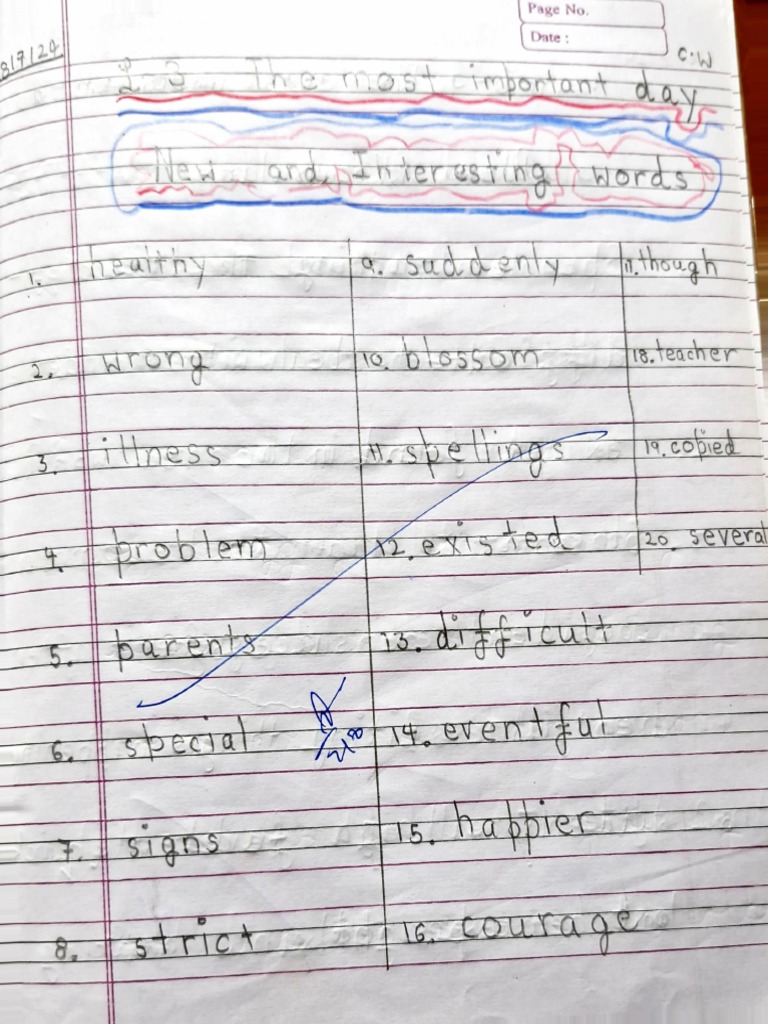 Page No.
Date :
8/7/24
C.W
2.3 The most important day
New and Interesting words
1. healthy
2. wrong
3. illness
4. problem
5. parents
6. special
7. signs
8. strict
9. suddenly
10. blossom
11. spellings
12. existed
13. difficult
14. eventful
15. happier
16. courage
17. though
18. teacher
19. copied
20. several